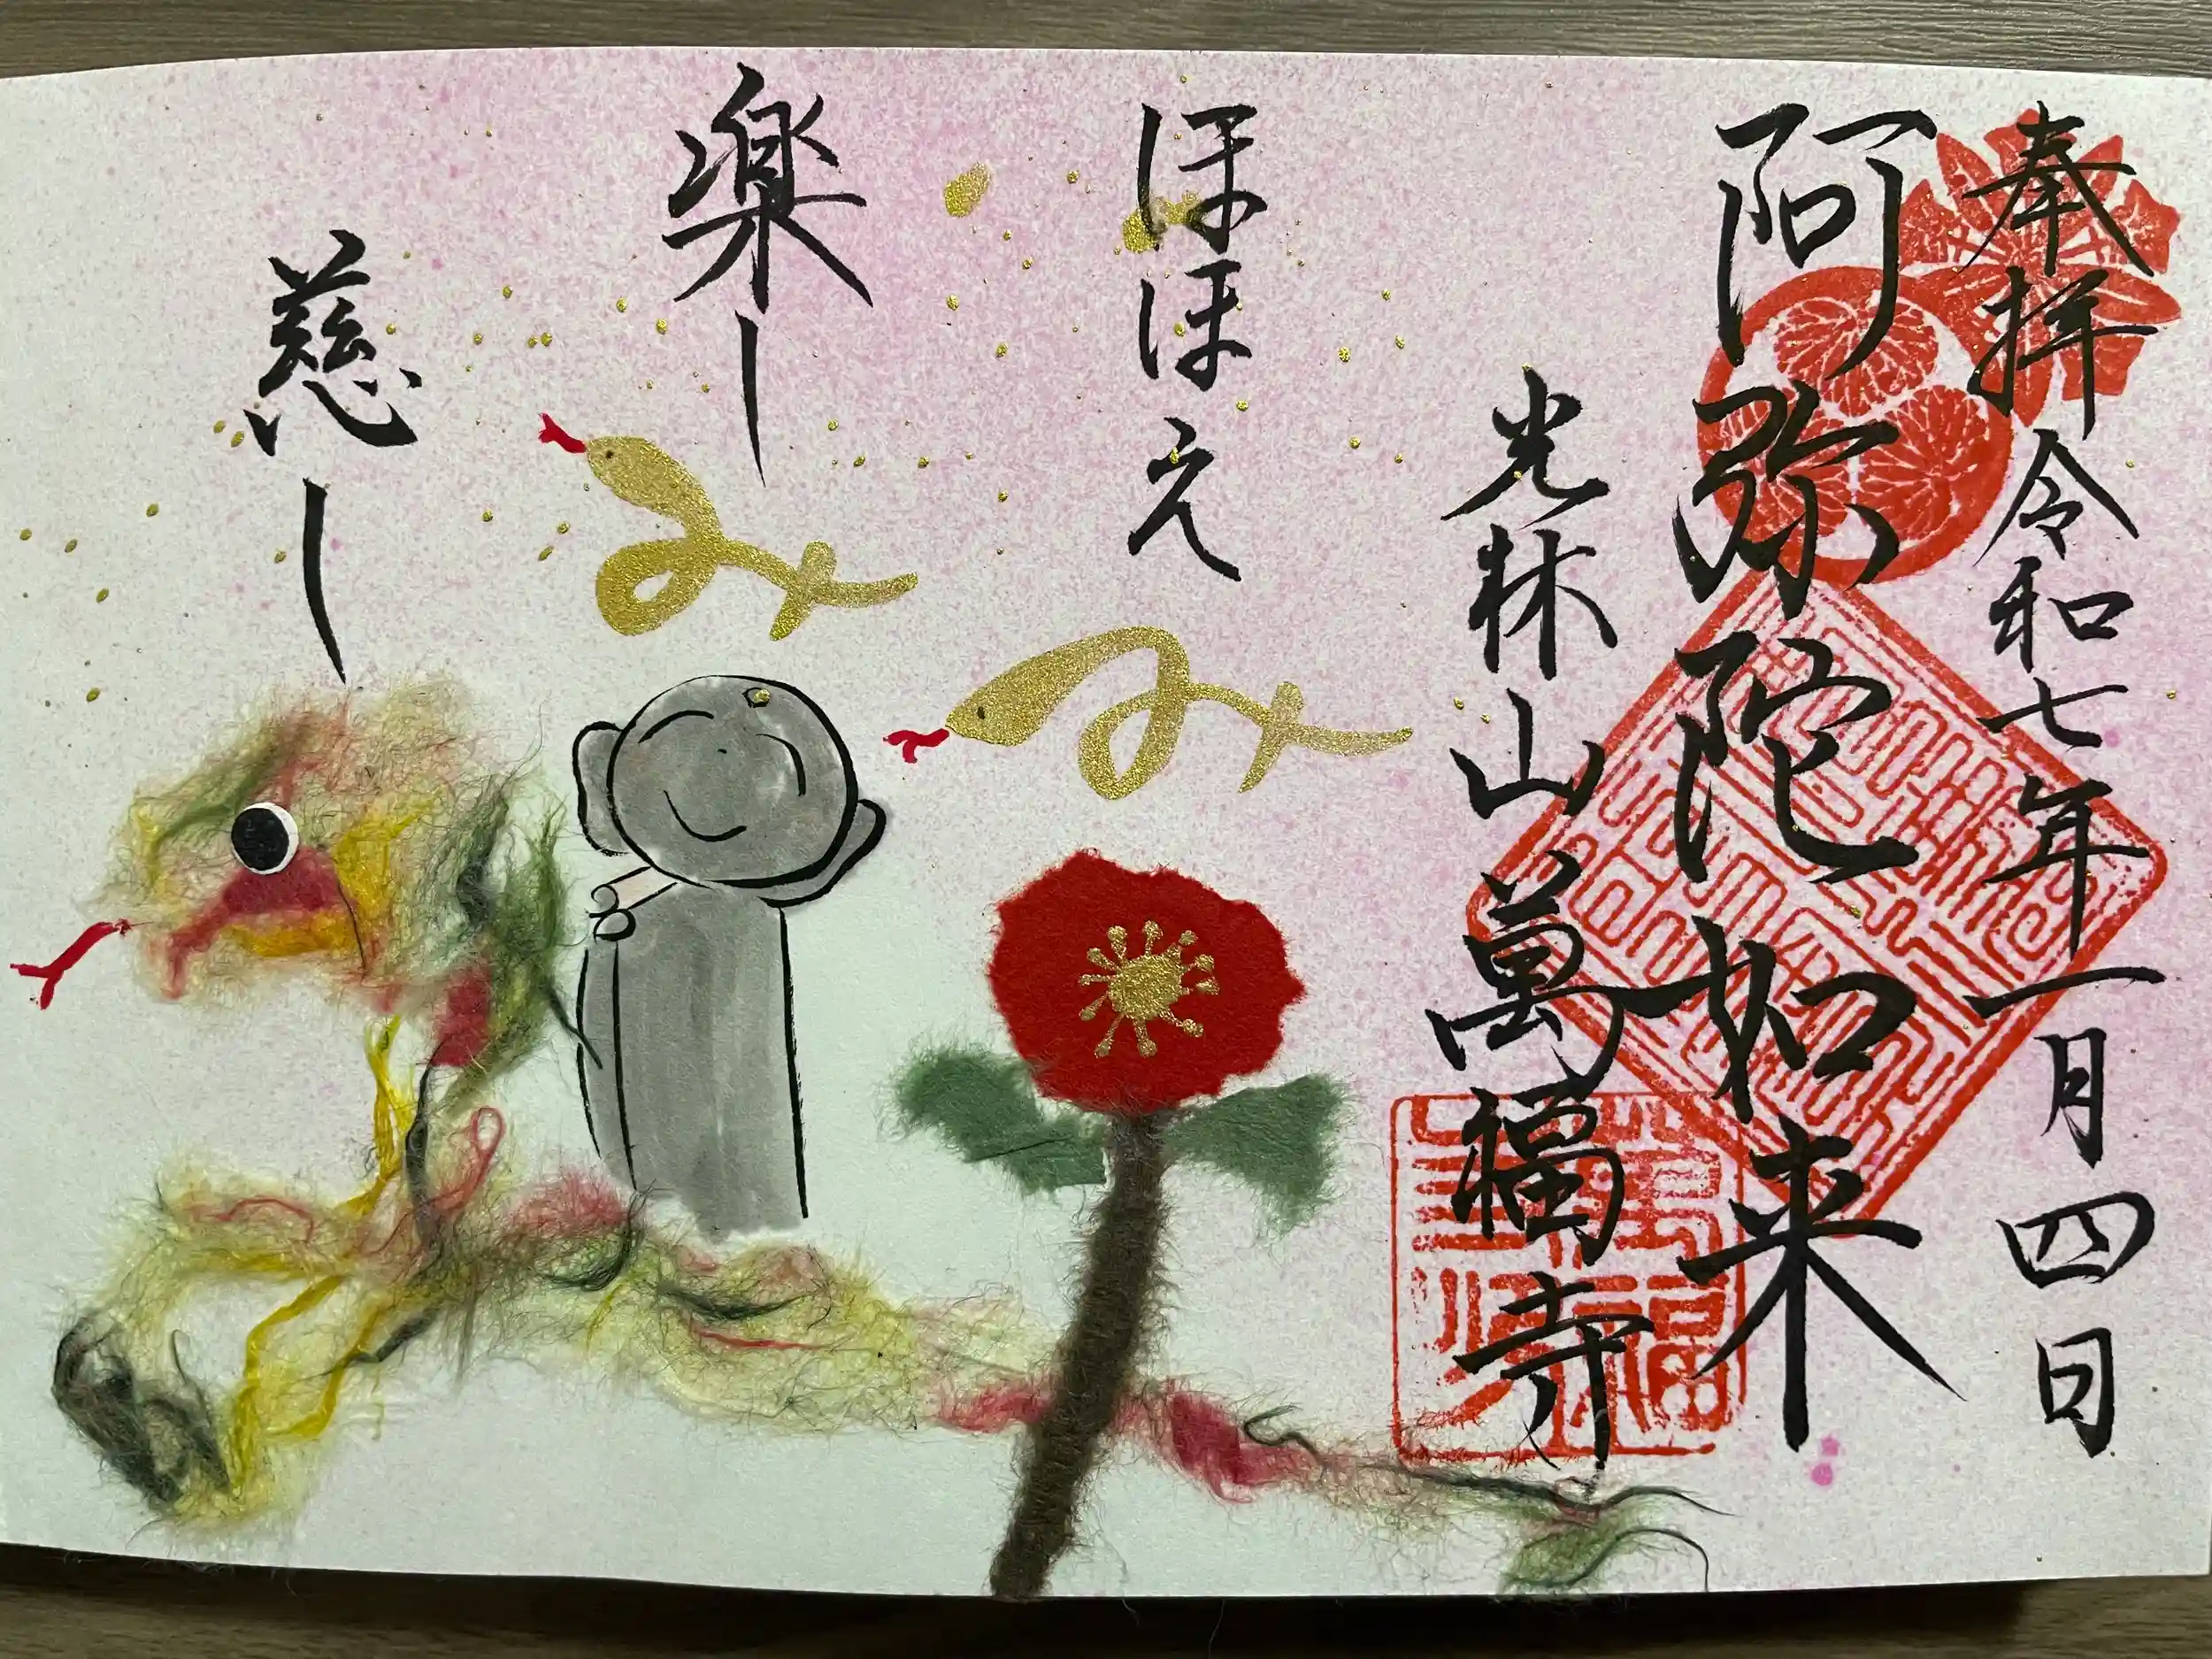 奉拝 令和七年一月四日
阿弥陀如来
光林山萬福寺
ほほえみ
楽しみ
慈し